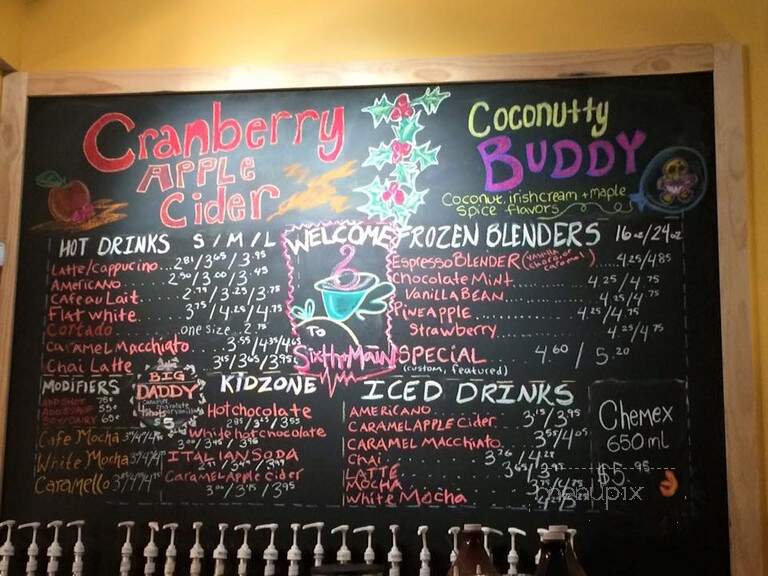 Cranberry
APPLE
Cider
Coconutty
BUDDY
Coconut, irishcream + maple
spice flavors
HOT DRINKS S / M / L
Latte/cappucino... 2.81 / 3.65 / 3.95
AMERICANO 2.50 / 3.00 / 3.45
Cafe au Lait 2.79 / 3.25 / 3.75
Flat white 3.75 / 4.25 / 4.75
Cortado one size 2.75
CARAMEL Macchiato 3.55
Chai Latte 3.15 / 3.65 / 3.95
WELCOME
TO
Sixth+Main
FROZEN BLENDERS 16oz/24oz
Espresso BLENDER (vanilla, choco, or caramel) 4.25/4.85
Chocolate Mint 4.25 / 4.75
Vanilla BEAN 4.25 / 4.75
Pineapple 4.25 / 4.75
Strawberry 4.25/4.75
SPECIAL 4.60 / 5.20
(custom, featured)
MODIFIERS
ADD SHOT 75¢
55¢
SOY/DAIRY 60¢
BIG
DADDY
$5
Cafe Mocha
White Mocha
Caramello
KIDZONE
Hot chocolate
2.85 / 3.25 / 3.55
White hot chocolate
3.00 / 3.45 / 3.95
ITALIAN SODA
Caramel Apple Cider
3.00 / 3.75 / 3.95
ICED DRINKS
AMERICANO 3.15 / 3.95
CARAMEL APPLE Cider
CARAMEL MACCHIATO 3.55 / 4.05
Chai 3.76 / 4.28
LATTE 3.65 / 3.97
MOCHA 3.75 / 4.75
White Mocha
Chemex
650 ml
$5.95
menupix